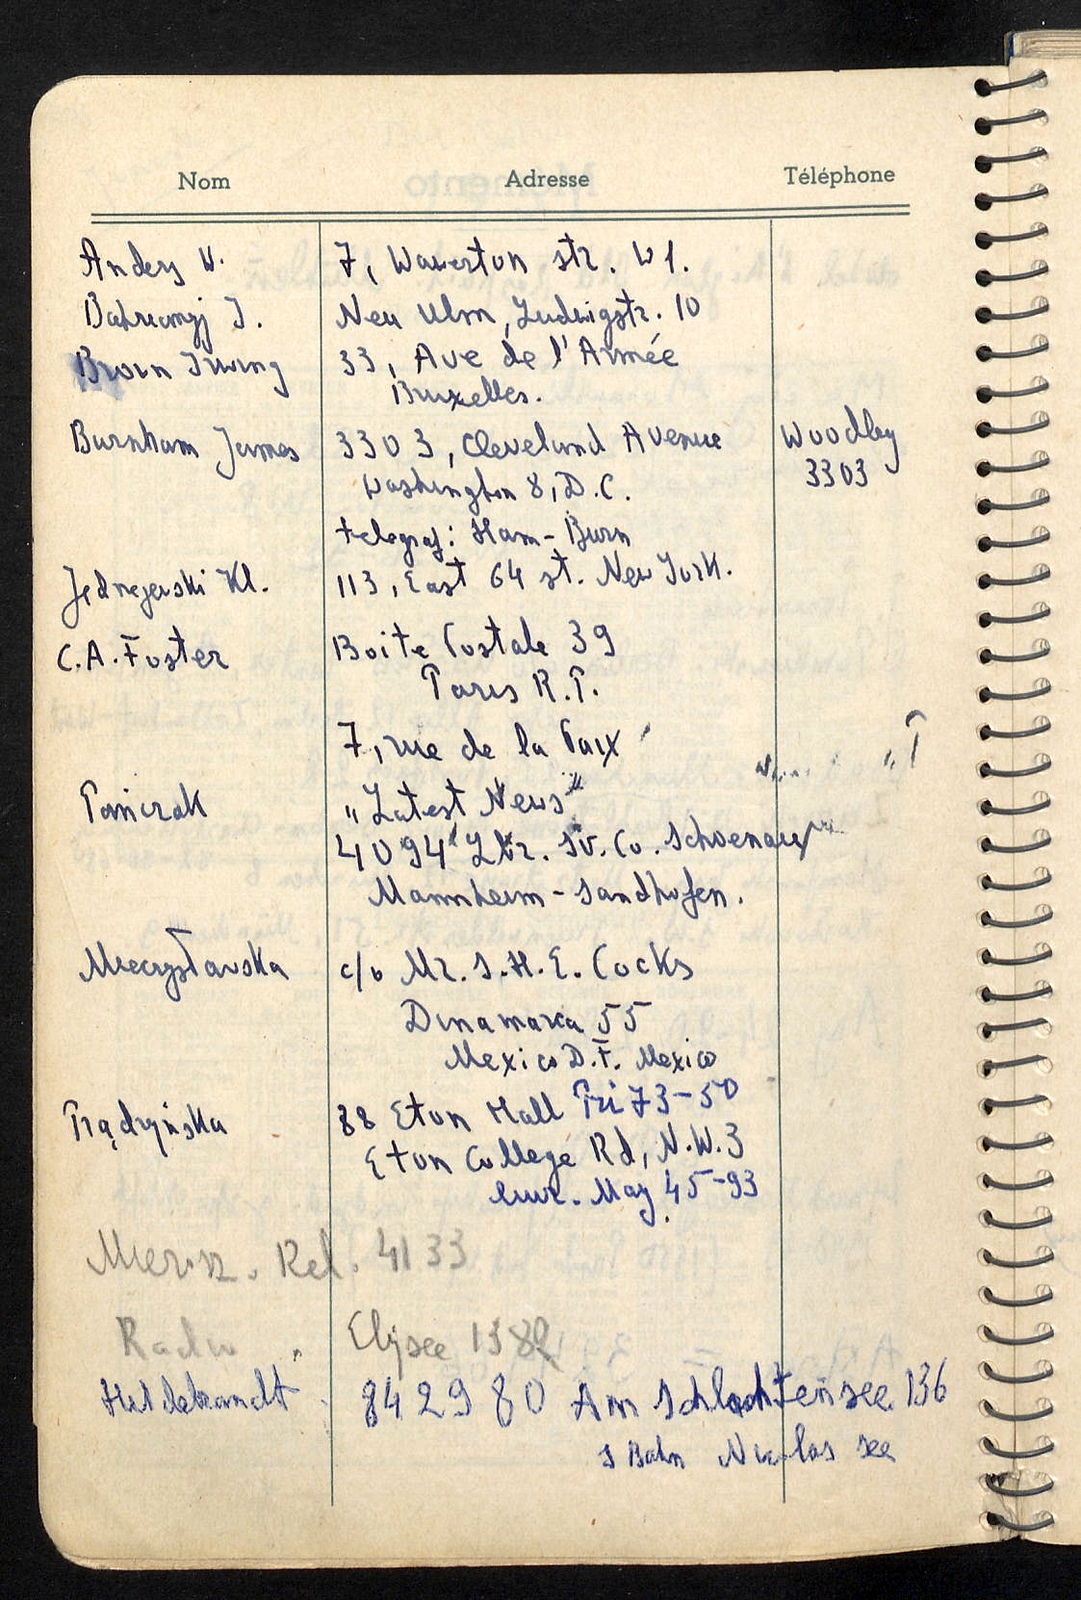 Nom Adresse Téléphone
Anders W. 7, Waverton str. W1.
J. Neu Ulm, Ludwigstr. 10
Brown Irving 33, Ave de l'Armée
Bruxelles.
Burnham James 3303, Cleveland Avenue Woodley
Washington 8, D.C. 3303
telegraf: Ham-Burn
Jędrzejewski Kl. 113, East 64 st. New York.
C.A. Foster Boite Postale 39
Paris R.P.
7, rue de la Paix
Pańczak "Latest News"
4094 Lbr. Sv. Co. Schoenau
Mannheim-Sandhofen.
Mieczysławska c/o Mr. S.H.E. Cocks
Dinamarca 55
Mexico D.F. Mexico
Prądzyńska 88 Eton Hall Pri 73-50
Eton College Rd, N.W.3
May 45-93
Rel. 4133
Radio Elysee 1382
Hildebrandt 842980 Am Schlachtensee 136
S Bahn Nikolas see